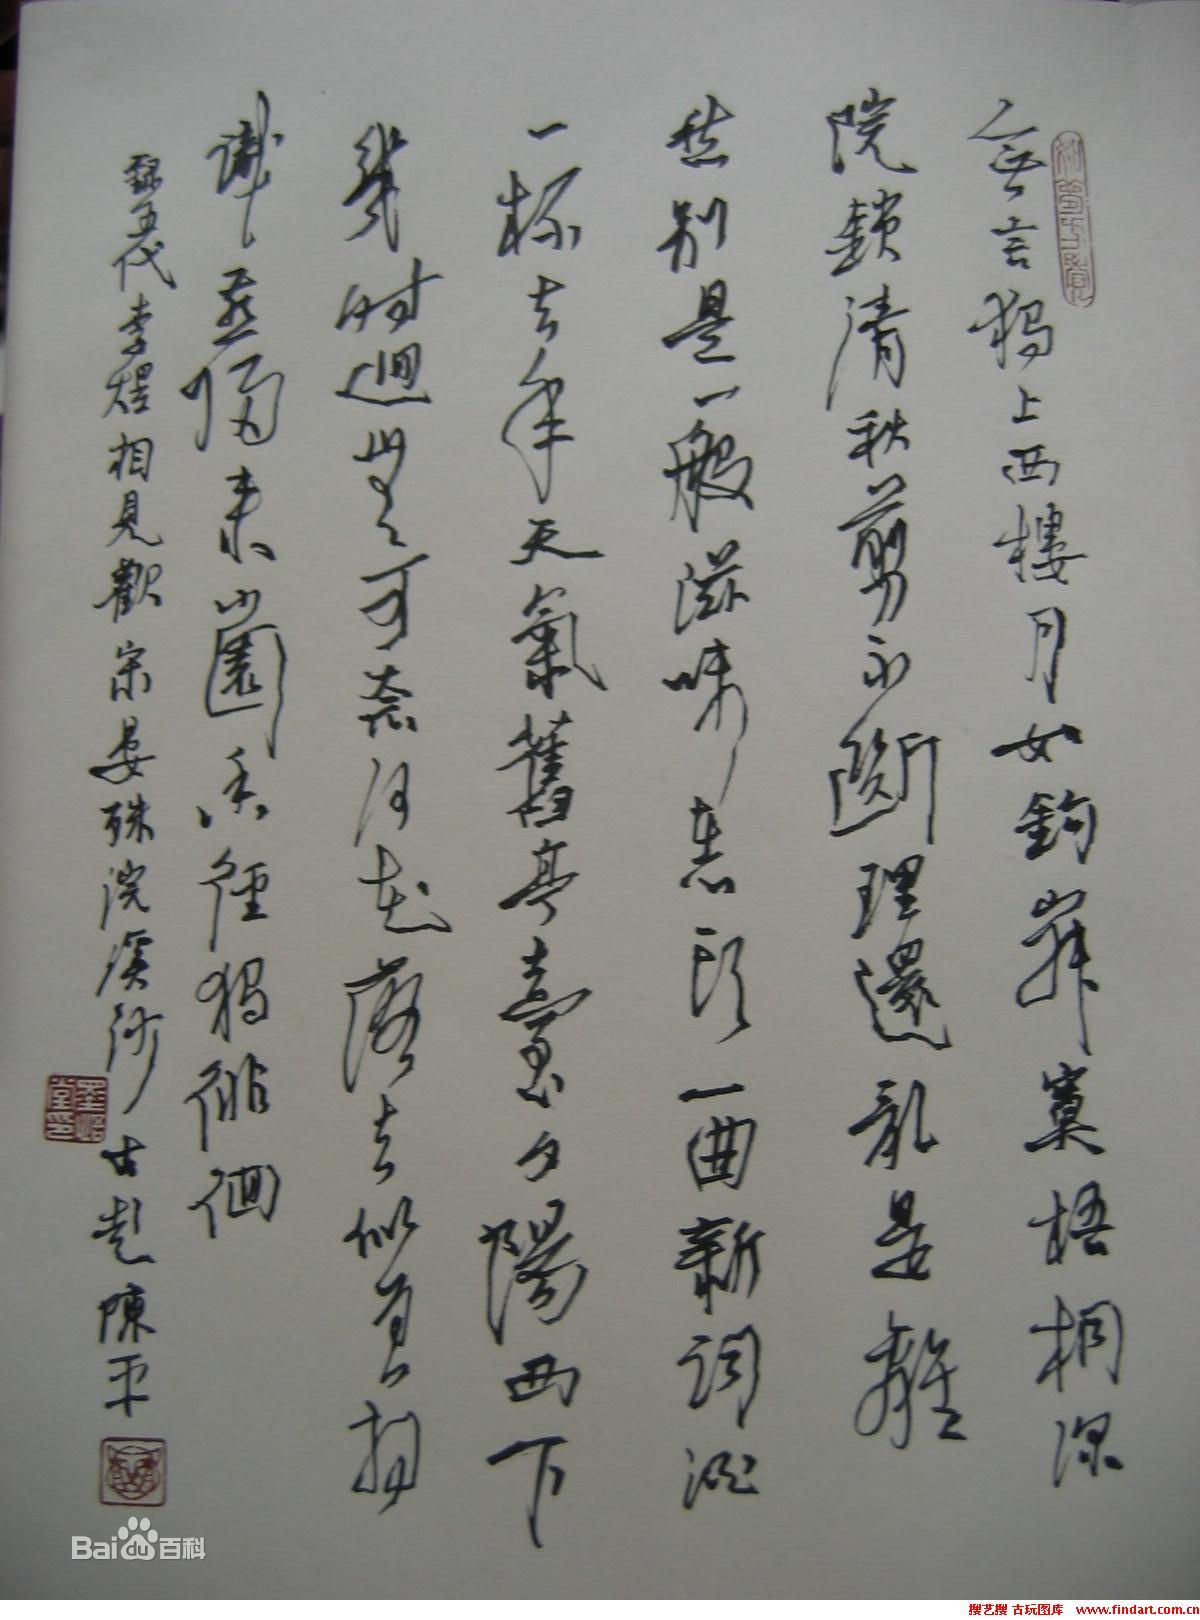 無言獨上西樓月如鉤寂寞梧桐深
院鎖清秋剪不斷理還亂是離
愁別是一般滋味在心頭一曲新詞酒
一杯去年天氣舊亭臺夕陽西下
幾時迴無可奈何花落去似曾相
識燕歸來小園香徑獨徘徊
錄五代李煜相見歡宋晏殊浣溪沙 古彭陳平
Bai du 百科
搜艺搜 古玩图库 www.findart.com.cn